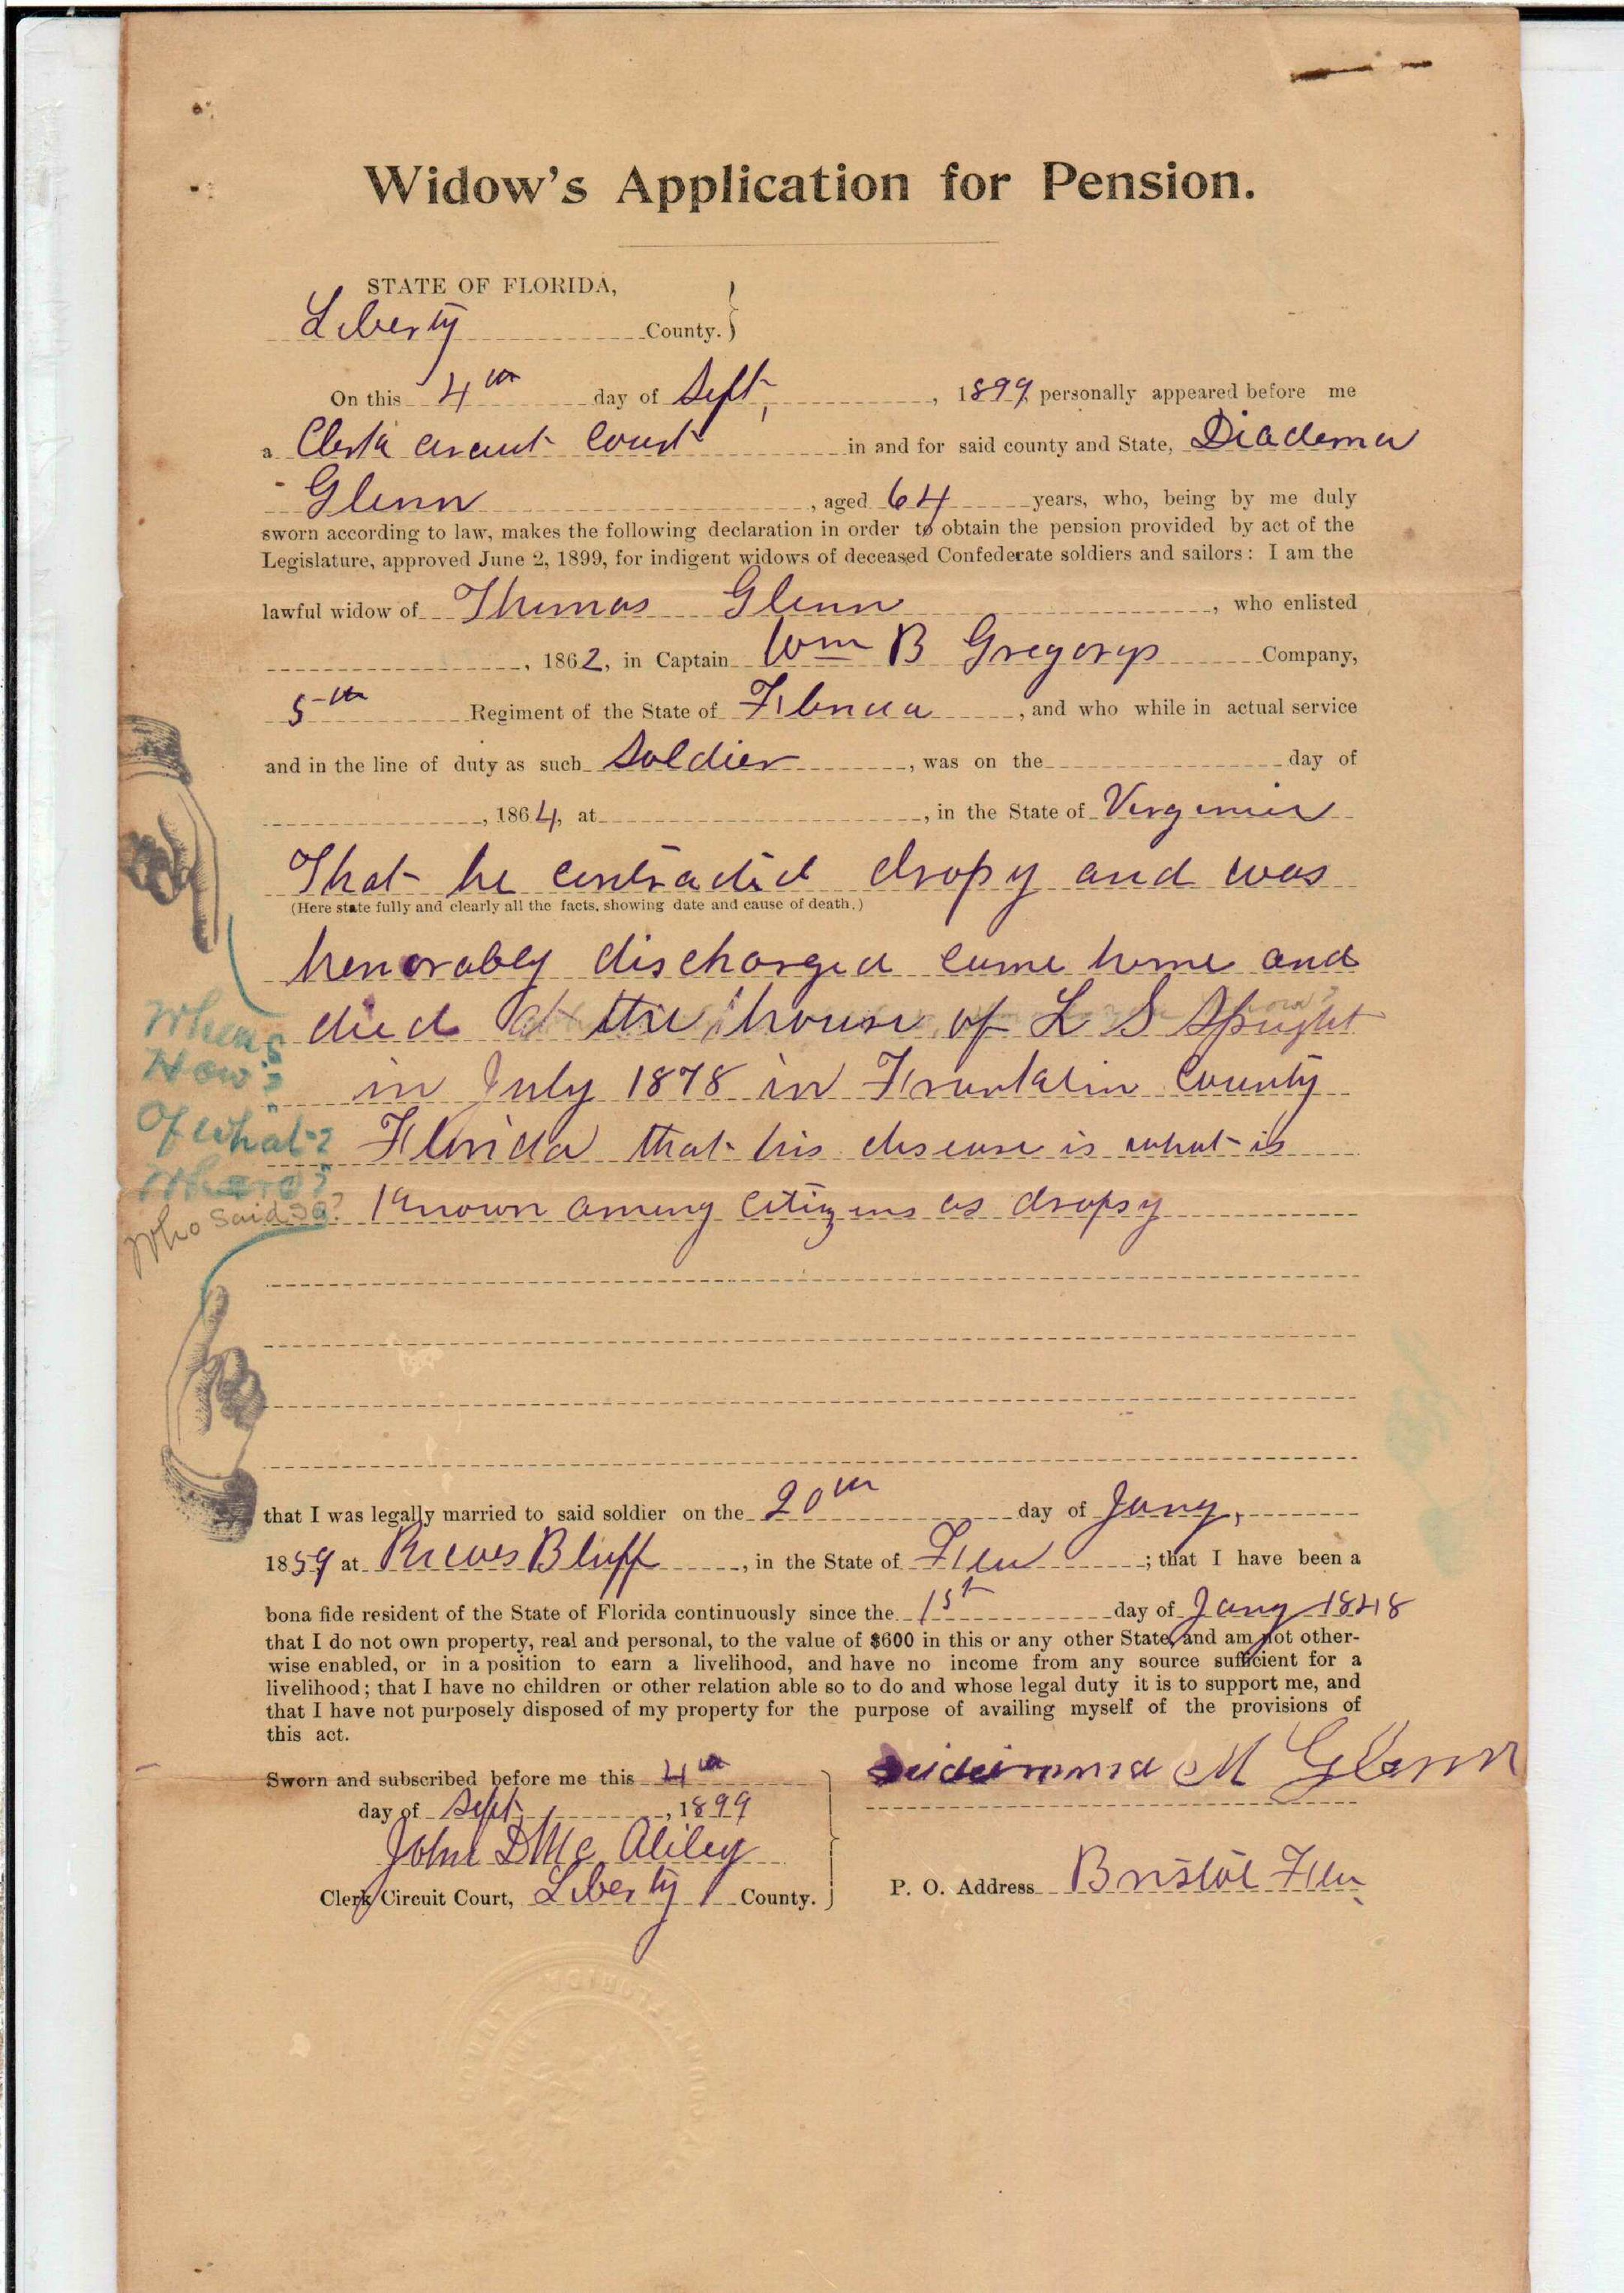 Widow's Application for Pension.
STATE OF FLORIDA,
Liberty County. }
On this 4th day of Sept, , 1899, personally appeared before me
a Clerk circuit court in and for said county and State, Diadema
Glenn , aged 64 years, who, being by me duly
sworn according to law, makes the following declaration in order to obtain the pension provided by act of the
Legislature, approved June 2, 1899, for indigent widows of deceased Confederate soldiers and sailors: I am the
lawful widow of Thomas Glenn , who enlisted
, 1862, in Captain Wm B Gregorys Company,
5th Regiment of the State of Florida , and who while in actual service
and in the line of duty as such Soldier , was on the day of
, 1864, at , in the State of Virginia
That he contracted dropy and was
(Here state fully and clearly all the facts, showing date and cause of death.)
honorably discharged came home and
died at the house of L S Spright
in July 1878 in Franklin County
Florida that his disease is what is
Known among citizens as dropsy
When?
How?
Of what?
Where?
Who said so?
that I was legally married to said soldier on the 20th day of Jany,
1859 at Rieves Bluff , in the State of Fla ; that I have been a
bona fide resident of the State of Florida continuously since the 1st day of Jany 1848
that I do not own property, real and personal, to the value of $600 in this or any other State, and am not other-
wise enabled, or in a position to earn a livelihood, and have no income from any source sufficient for a
livelihood; that I have no children or other relation able so to do and whose legal duty it is to support me, and
that I have not purposely disposed of my property for the purpose of availing myself of the provisions of
this act.
Sworn and subscribed before me this 4th
day of Sept, , 1899
M Glenn
John D Mc Aliley
Clerk Circuit Court, Liberty County. }
P. O. Address Bristol Fla